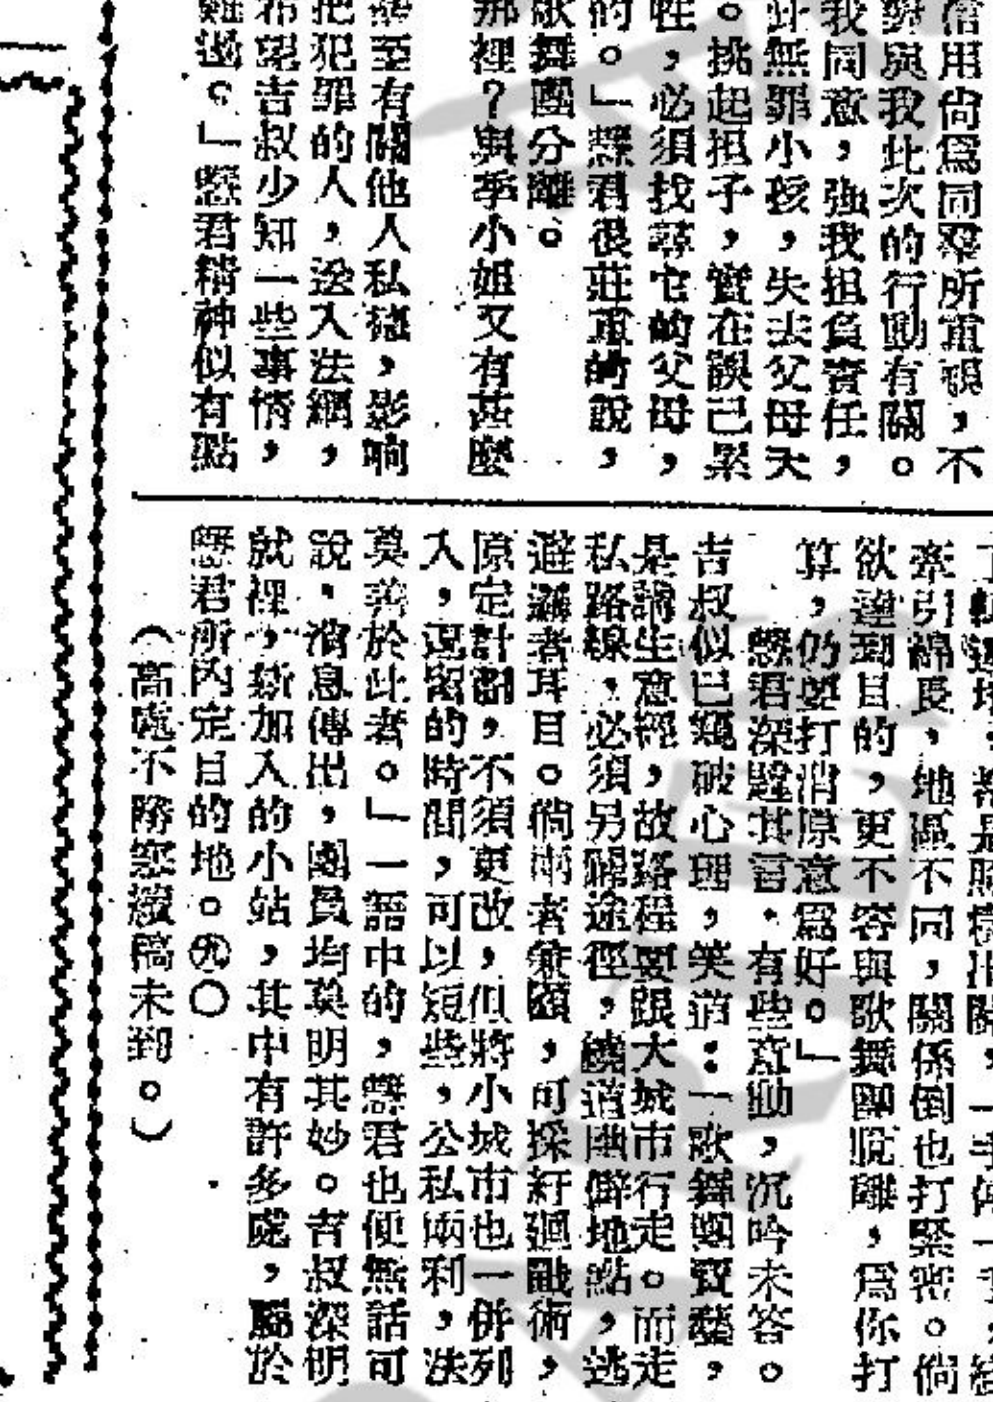 信用尙爲同羣所重視，不
與我此次的行動有關。
我同意，強我担負責任，
此無罪小孩，失去父母天
。挑起担子，實在誤己累
牲，必須找尋它的父母，
的。」懸君很莊重的說，
歌舞團分離。
那裡？與季小姐又有甚麼
至有關他人私德，影响
把犯罪的人，送入法網，
希望吉叔少知一些事情，
難過。」懸君精神似有點
牽引綿長，地區不同，關係倒也打緊密。倘
欲達到目的，更不容與歌舞團脫離，爲你打
算，仍要打消原意爲好。」
懸君深韙其言，有些意動，沉吟未答。
吉叔似已窺破心理，笑道：「歌舞團賣藝，
是講生意經，故路程要跟大城市行走。而走
私路線，必須另闢途徑，繞道幽僻地點，逃
避邏者耳目。倘兩者兼顧，可採紆迴戰術，
原定計劃，不須更改，但將小城市也一併列
入，逗留的時間，可以短些，公私兩利，法
莫善於此者。」一語中的，懸君也便無話可
說。消息傳出，團員均莫明其妙。吉叔深明
就裡，新加入的小站，其中有許多處，屬於
懸君所內定目的地。
（高處不勝寒續稿未到。）